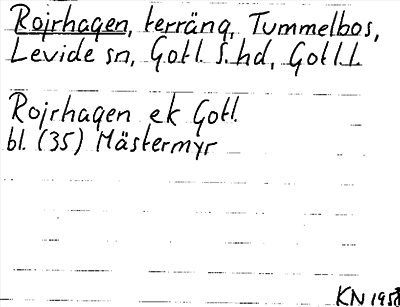 Rojrhagen, terräng, Tummelbos,
Levide sn, Gotl. S. hd, Gotl. l.
Rojrhagen ek Gotl.
bl. (35) Mästermyr
KN